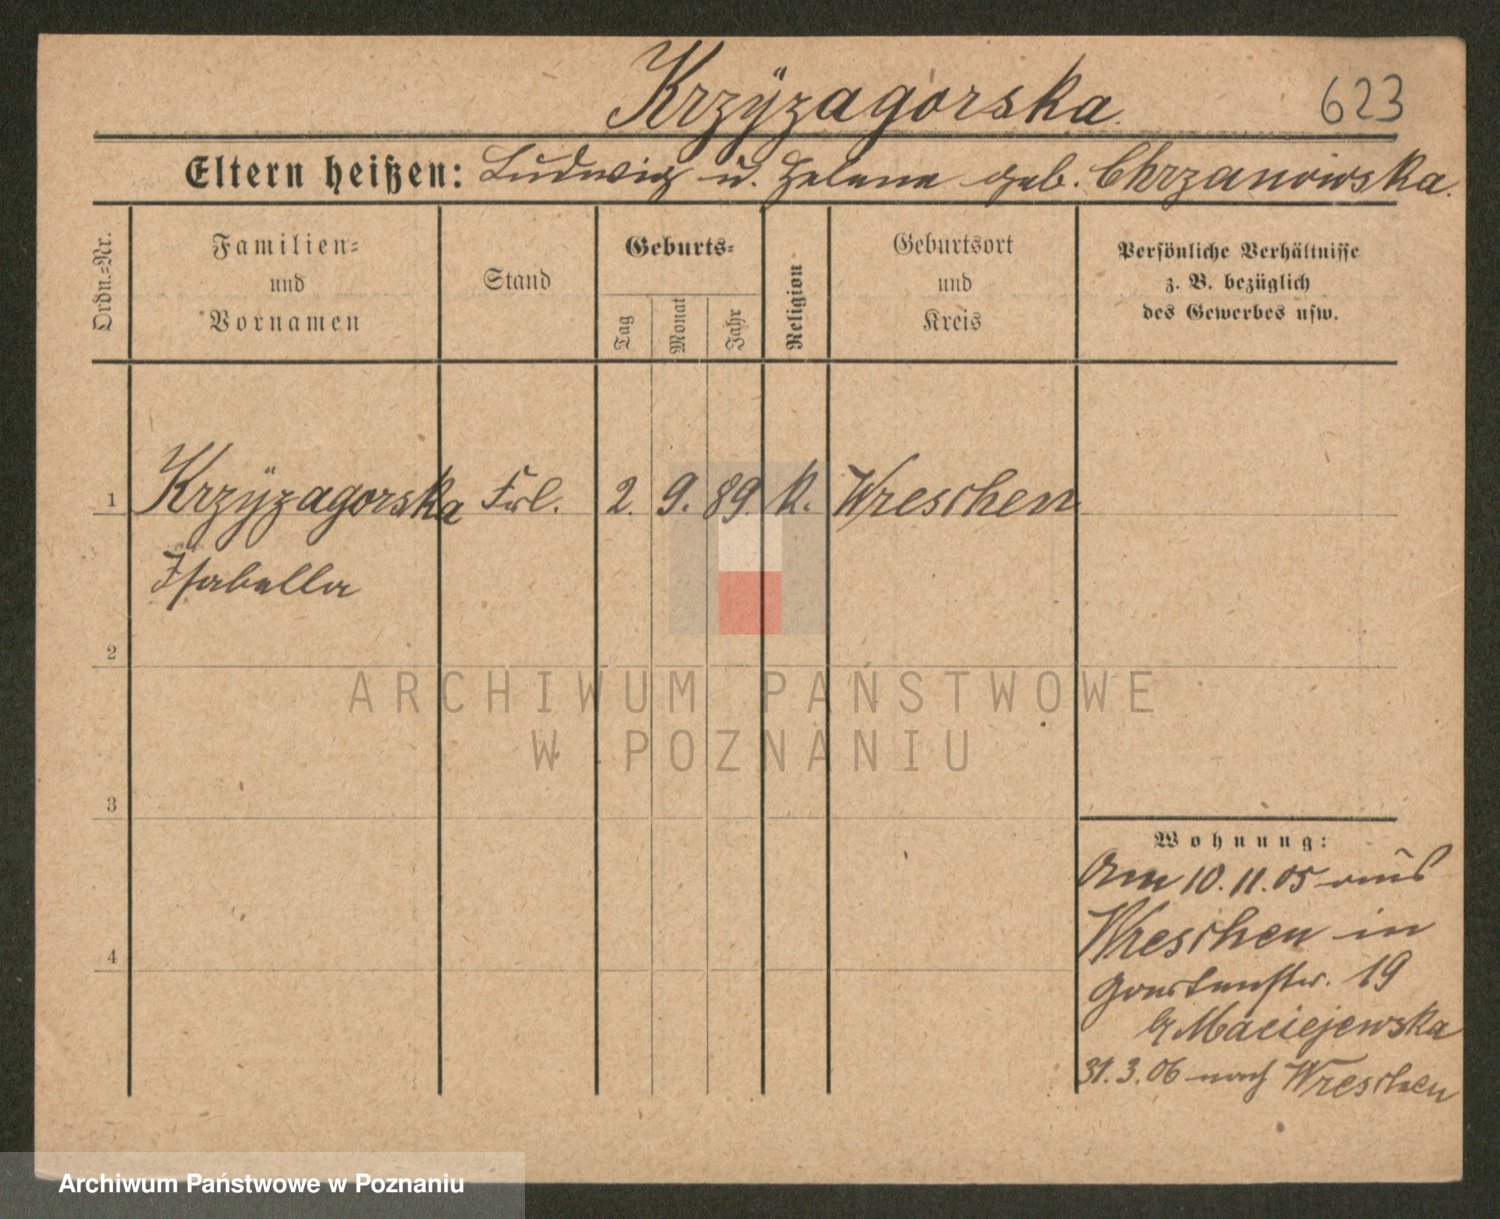 Krzÿzagorska
623
Eltern heißen: Ludwig u. Helene geb. Chrzanowska.
Ordn.-Nr.
Familien-
und
Vornamen
Stand
Geburts-
Tag
Monat
Jahr
Religion
Geburtsort
und
Kreis
Persönliche Verhältnisse
z. B. bezüglich
des Gewerbes usw.
1 Krzÿzagorska Frl. 2. 9. 89 K. Wreschen
Isabella
2
3
4
Wohnung:
Am 10.11.05 aus
Wreschen in
Gartenstr. 19
b/ Maciejewska
31.3.06 nach Wreschen
ARCHIWUM PAŃSTWOWE
W POZNANIU
Archiwum Państwowe w Poznaniu